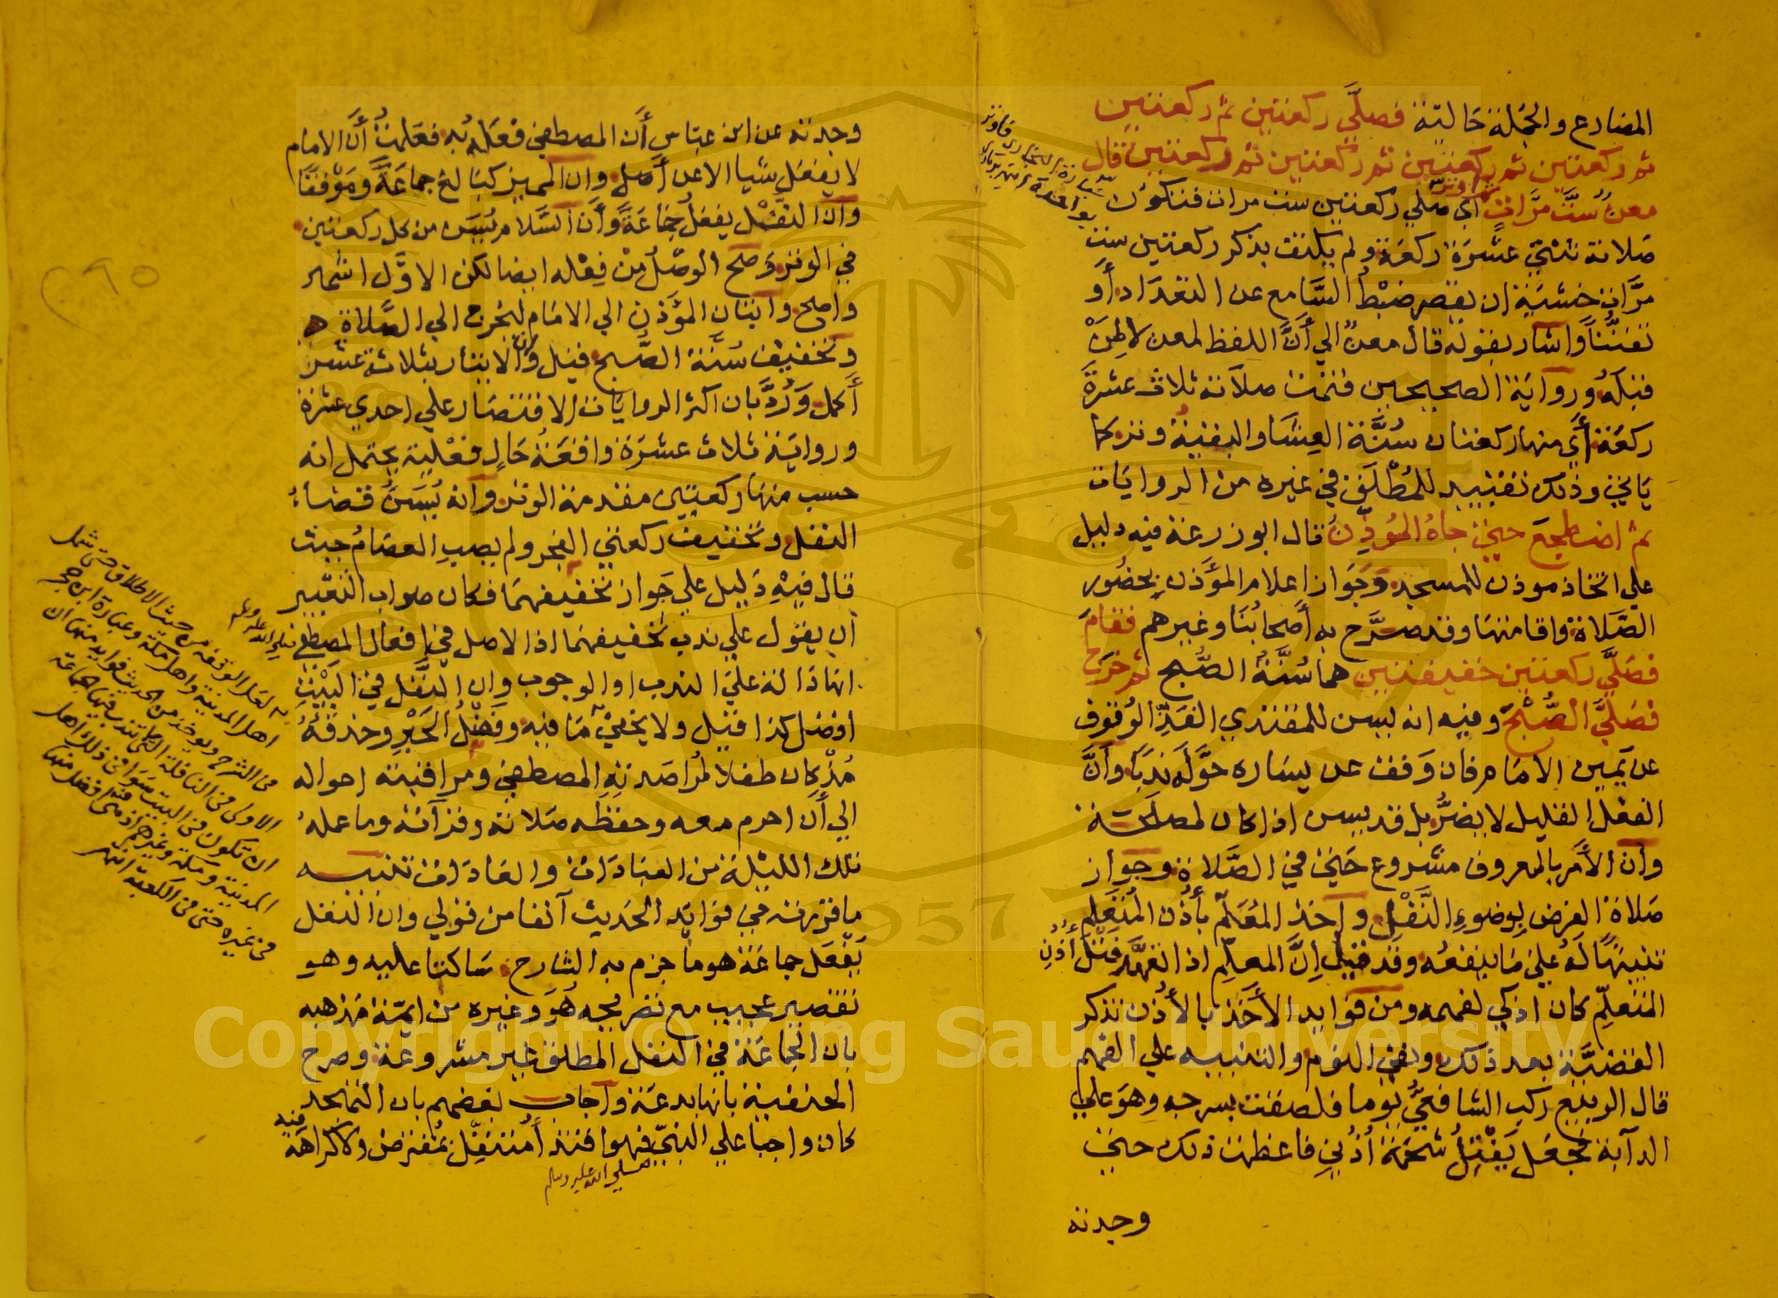 المضارع والجملة حالية فصلى ركعتين ثم ركعتين
ثم ركعتين ثم ركعتين ثم ركعتين ثم ركعتين قال
معن ست مرات اي صلى ركعتين ست مرات فتكون
صلاته ثنتي عشرة ركعة ولم يكتف بذكر ركعتين ست
مرات خشية ان يقصر ضبط السامع عن التعداد أو
تفننا واشار بقوله قال معن الي أن اللفظ لمعن لا لمن
قبله ورواية الصحيحين فتمت صلاته ثلاث عشرة
ركعة أي منها ركعتان سنة العشا والبقية وتر كما
ياتي وذلك تقييد للمطلق في غيره من الروايات
ثم اضطجع حتى جاه المؤذن قال ابو زرعة فيه دليل
علي اتخاذ موذن للمسجد وجواز اعلام المؤذن بحضور
الصلاة واقامتها وقد صرح به أصحابنا وغيرهم فقام
فصلي ركعتين خفيفتين هما سنة الصبح ثم خرج
فصلي الصبح وفيه انه يسن للمقتدي الفذ الوقوف
عن يمين الامام فان وقف عن يساره حوله ندبا وأن
الفعل القليل لا يضر بل قد يسن اذا كان لمصلحة
وان الأمر بالمعروف مشروع حتي في الصلاة وجواز
صلاة الفرض بوضوء النفل واخذ المعلم بأذن المتعلم
تنبيها له علي ما ينفعه وقد قيل ان المعلم اذا تعهد فتل أذن
المتعلم كان اذكي لفهمه ومن فوايد الأخذ بالأذن تذكر
القضية بعد ذلك ونفي النوم والتنبيه علي الفهم
قال الربيع ركب الشافعي يوما فلصقت بسرجه وهو علي
الدابة فجعل يفتل شحمة أذني فاعظمت ذلك حتي
وجدته
وجدته عن ابن عباس أن المصطفي فعله به فعلمت أن الامام
لا يفعل شيا الا عن أصل وان المميز كبالغ جماعة وموقفا
وان النفل يفعل جماعة وأن السلام يسن من كل ركعتين
في الوتر وصح الوصل من فعله ايضا لكن الاول اشهر
واصح واتيان المؤذن الي الامام ليخرج الي الصلاة
وتخفيف سنة الصبح قيل وان الايتار بثلاثة عشر
أكمل ورد بان اكثر الروايات الاقتصار علي احدي عشرة
ورواية ثلاث عشرة واقعة حال فعلية يحتمل انه
حسب منها ركعتين مقدمة الوتر وانه يسن قضاء
النفل وتخفيف ركعتي الفجر ولم يصب العصام حيث
قال فيه دليل علي جواز تخفيفهما فكان صواب التعبير
أن يقول علي ندب تخفيفهما اذ الاصل في افعال المصطفي
صلي الله عليه وسلم
انها دالة علي الندب او الوجوب وان النفل في البيت
افضل كذا قيل ولا يخفي ما فيه وفضل الحبر وحذقه
مذ كان طفلا لمراصدته المصطفي ومراقبته احواله
الي أن احرم معه وحفظه صلاته وقرآنه وما عمله
تلك الليلة من العبادات والعادات تنبيه
ما قررته في فوايد الحديث آنفا من قولي وان النفل
يفعل جماعة هو ما جزم به الشارح ساكتا عليه وهو
تقصير عجيب مع تصريحه هو وغيره من ائمة مذهبه
بان الجماعة في النفل المطلق غير مشروعة وصرح
الحنفية بانها بدعة واجاب بعضهم بان التهجد
كان واجبا علي النبي فهو اقتدا متنفل بمفترض ولا كراهة فيه
صلي الله عليه وسلم
اهل المدينة واهل مكة وعبارة ابن حجر
في الشرح ويوخذ من الحديث فوايد منها ان
الاولى في النافلة التي لا تندب فيها جماعة
ان تكون في البيت سوا في ذلك اهل
المدينة ومكة وغيرهم اذ هي افضل منها
في غيره حتى في الكعبة انتهى